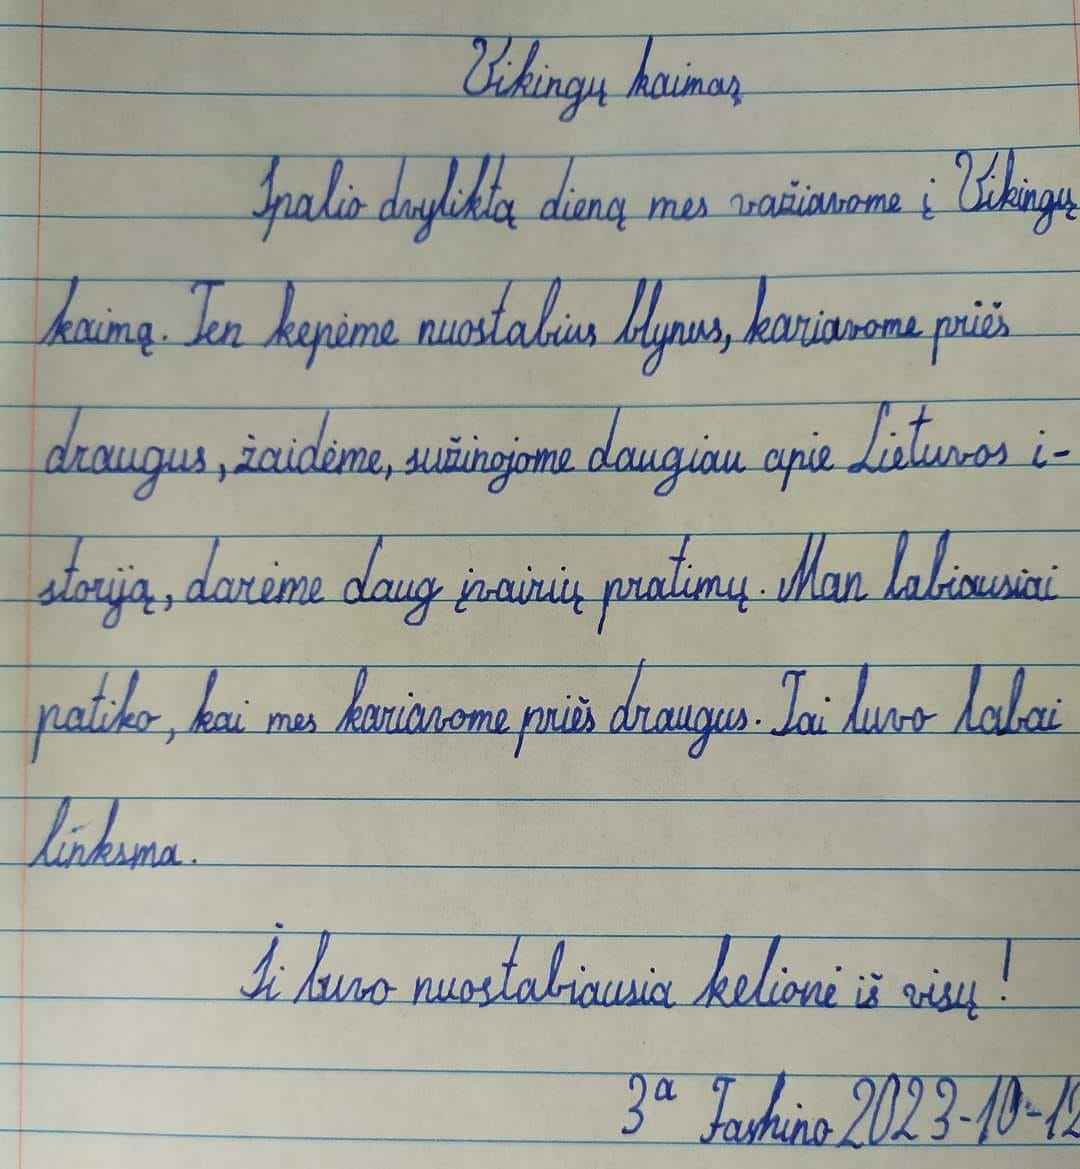 Vikingų kaimas
Spalio dvyliktą dieną mes važiavome į Vikingų
kaimą. Ten kepėme nuostabius blynus, kariavome prieš
draugus, žaidėme, sužinojome daugiau apie Lietuvos i-
storiją, darėme daug įvairių pratimų. Man labiausiai
patiko, kai mes kariavome prieš draugus. Tai buvo labai
linksma.
Ši buvo nuostabiausia kelionė iš visų!
3a 2023-10-12